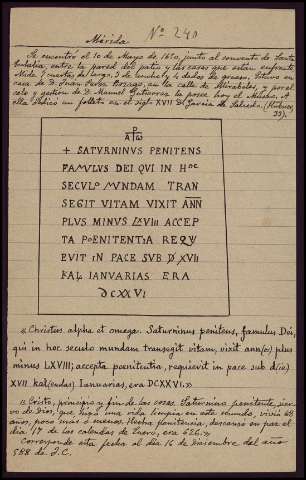 Nº 240
Mérida
Se encontró el 10 de Mayo de 1650, junto al convento de Santa
Eulalia, entre la pared del patio y las casas que están enfrente
Mide 7 cuartas de largo, 3 de ancho y 4 dedos de grueso. Estuvo en
casa de D. Juan en la calle de Mirabeles, y por el
celo y gestión de D. Manuel Gutierrez la posee hoy el Museo. A
ella dedicó un folleto en el siglo XVII D. García de Salcedo. (Hübner,
A Ω
+ SATURNINUS PENITENS
FAMULUS DEI QUI IN HOC
SECULO MUNDAM TRAN
SEGIT VITAM VIXIT ANN
PLUS MINUS LXVIII ACCEP
TA POENITENTIA REQV
EVIT IN PACE SUB D XVII
KAL IANVARIAS ERA
DCXXVI
«Christus alpha et omega. Saturninus penitens, famulus Dei,
qui in hoc seculo mundam transegit vitam, vixit ann(o) plus
minus LXVIII; accepta poenitentia, requievit in pace sub d(ie)
XVII kal(endas) Ianuarias, era DCXXVI.»
"Cristo, principio y fin de las cosas. Saturnino penitente, sier-
vo de dios, que hizo una vida limpia en este mundo, vivió 68
años, poco mas o menos. Hecha penitencia, descansó en paz el
día 17 de las calendas de Enero, era 626."
Corresponde esta fecha al día 16 de Diciembre del año
588 de J.C.